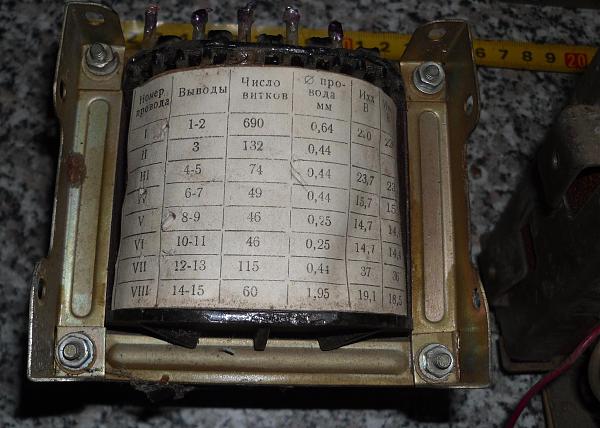 1 2 6 7 8 9 20
Номер провода Выводы Число витков Ø про- вода мм Uхх В
I 1-2 690 0,64 220
II 3 132 0,44
III 4-5 74 0,44 23,7
IV 6-7 49 0,44 15,7
V 8-9 46 0,25 14,7
VI 10-11 46 0,25 14,7
VII 12-13 115 0,44 37 36
VIII 14-15 60 1,95 19,1 18,5